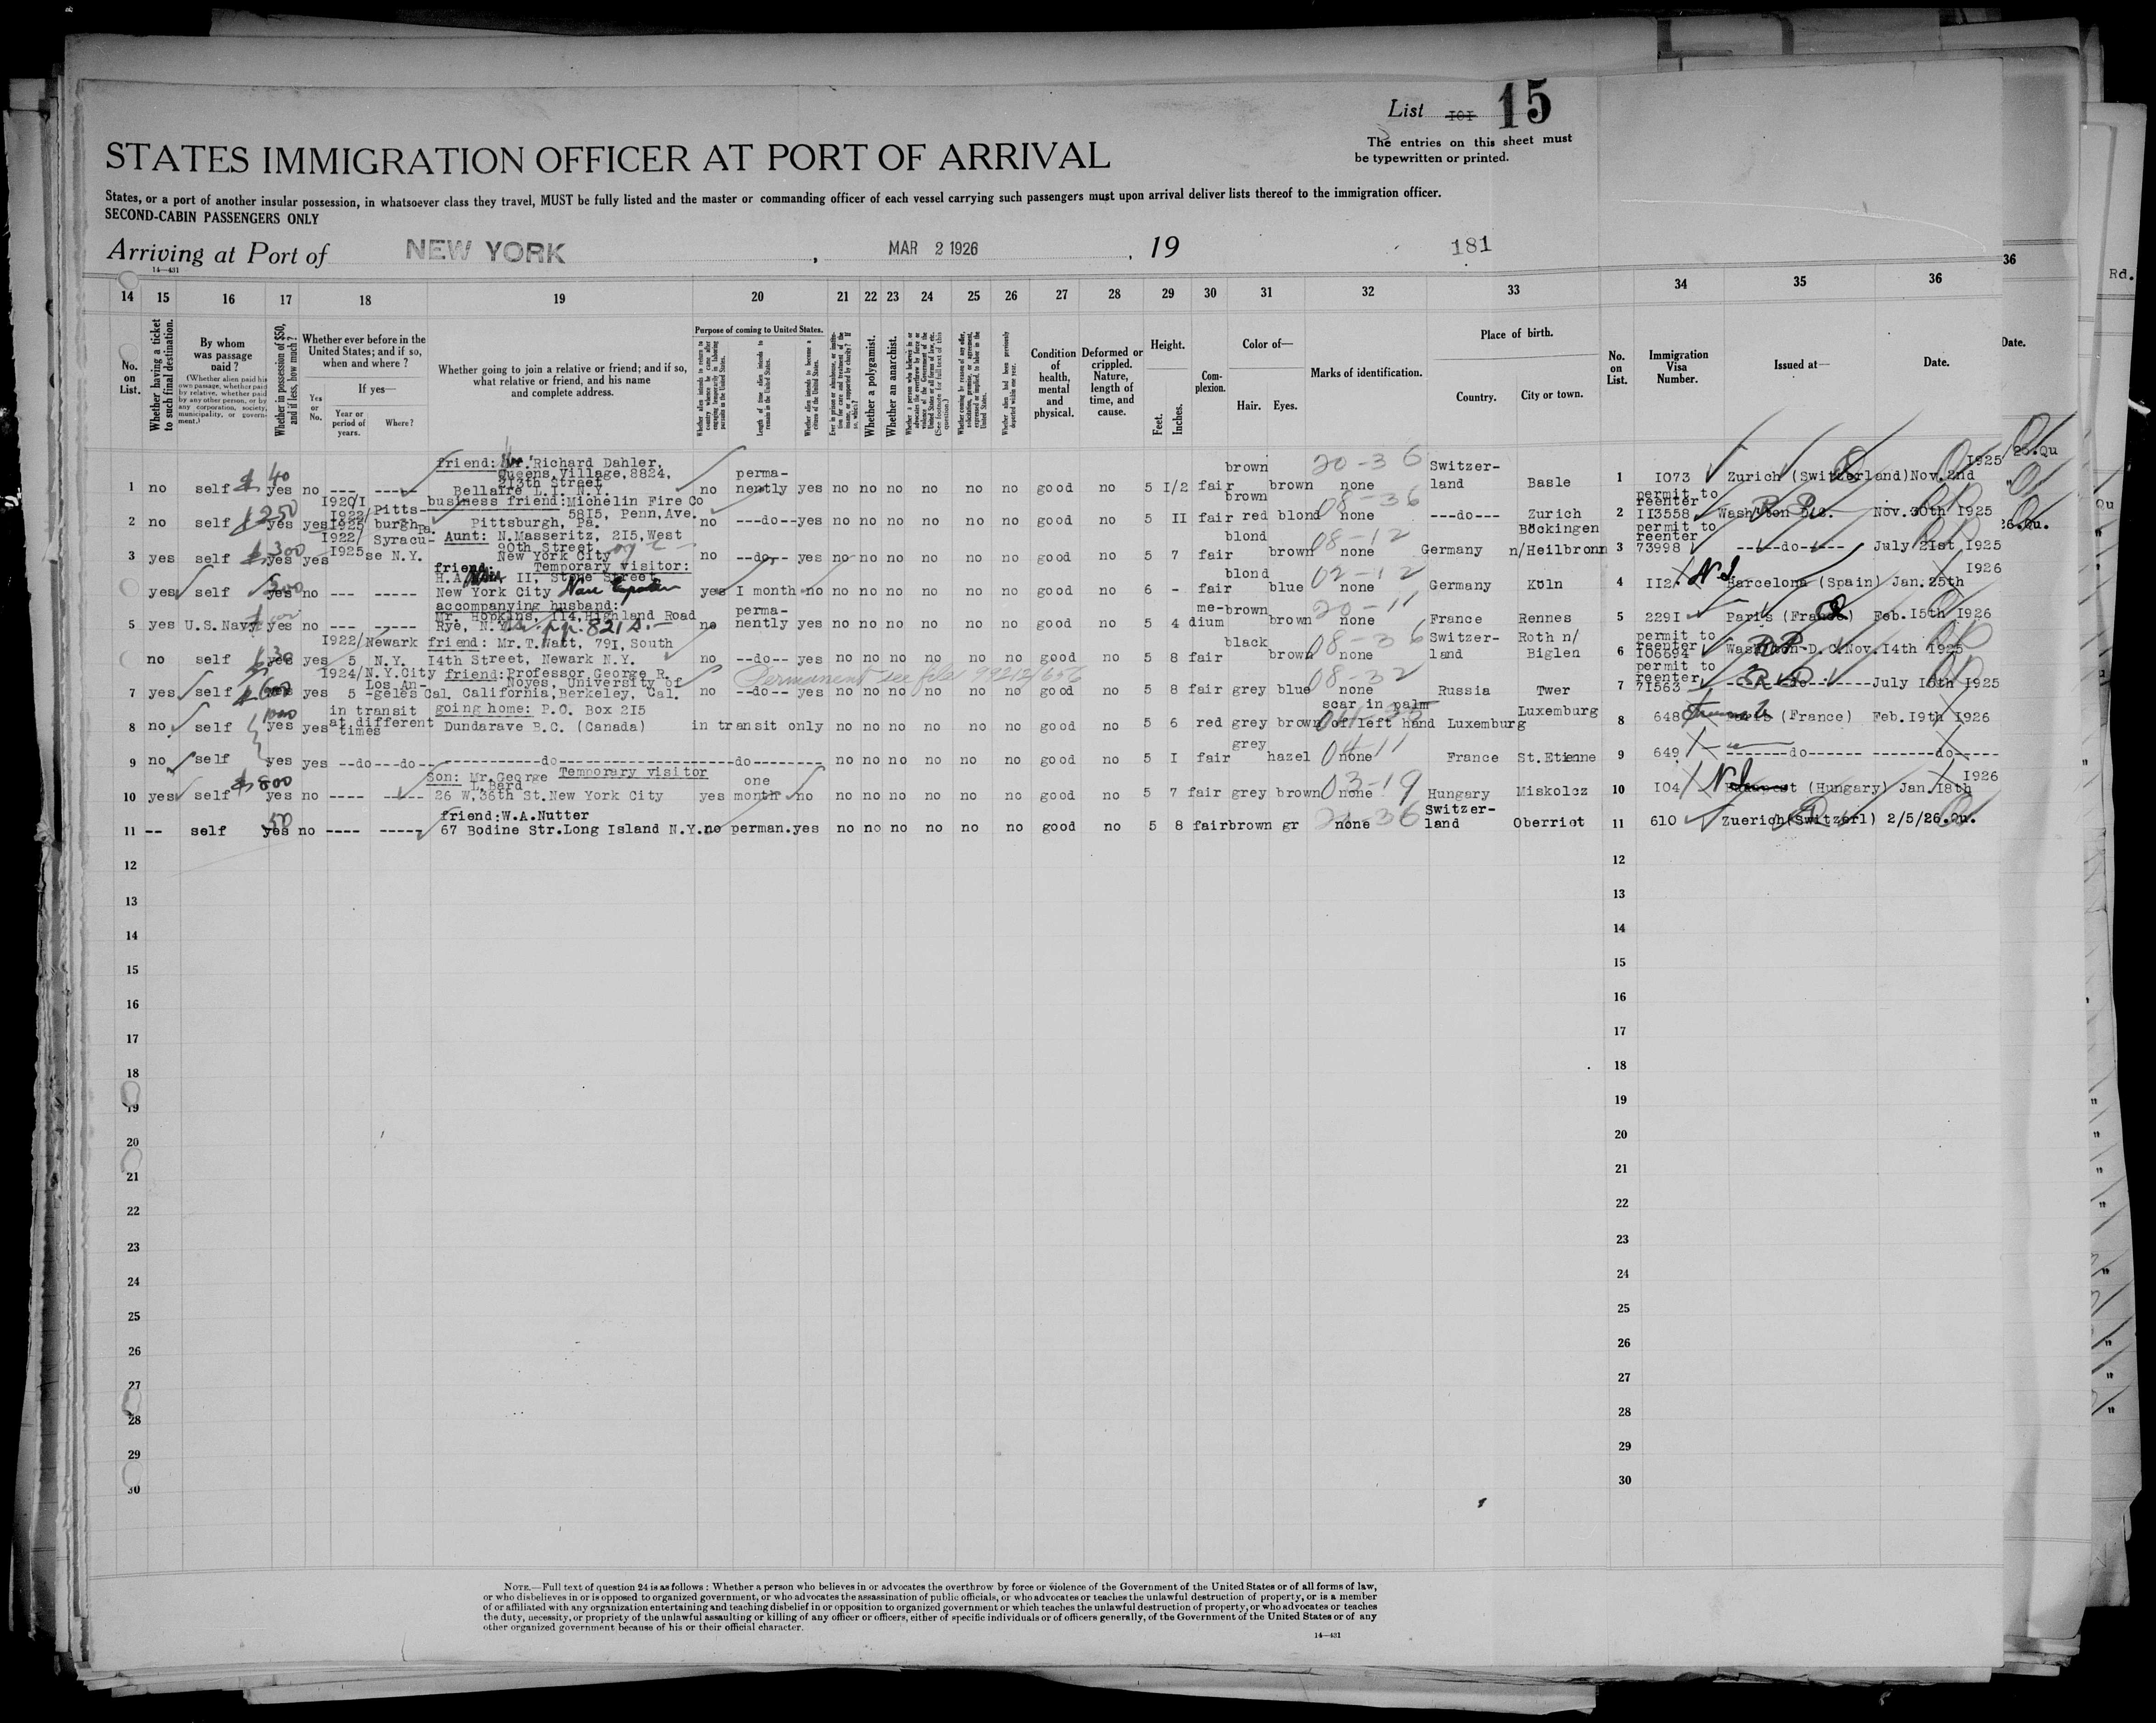 List 101 15
The entries on this sheet must
be typewritten or printed.
STATES IMMIGRATION OFFICER AT PORT OF ARRIVAL
States, or a port of another insular possession, in whatsoever class they travel, MUST be fully listed and the master or commanding officer of each vessel carrying such passengers must upon arrival deliver lists thereof to the immigration officer.
SECOND-CABIN PASSENGERS ONLY
Arriving at Port of NEW YORK, MAR 2 1926, 19 181
14—431
14 15 16 17 18 19 20 21 22 23 24 25 26 27 28 29 30 31 32 33 34 35 36 36
No. on List.
Whether having a ticket to such final destination.
By whom was passage paid?
(Whether alien paid his own passage, whether paid by relative, whether paid by any other person, or by any corporation, society, municipality, or government.)
Whether in possession of $50, and if less, how much?
Whether ever before in the United States; and if so, when and where?
Yes or No.
If yes—
Year or period of years.
Where?
Whether going to join a relative or friend; and if so, what relative or friend, and his name and complete address.
Purpose of coming to United States.
Whether alien intends to return to country whence he came after engaging temporarily in laboring pursuits in the United States.
Length of time alien intends to remain in the United States.
Whether alien intends to become a citizen of the United States.
Whether a polygamist.
Whether an anarchist.
Condition of health, mental and physical.
Deformed or crippled. Nature, length of time, and cause.
Height.
Feet. Inches.
Complexion.
Color of—
Hair. Eyes.
Marks of identification.
Place of birth.
Country. City or town.
No. on List.
Immigration Visa Number.
Issued at—
Date.
Date.
1 no self $ 40 yes no --- ----- friend: Mr. Richard Dahler, Queens Village, 8824, 213th Street Bellaire L.I. N.Y. no permanently yes no no no no no no good no 5 I/2 fair brown brown none 20-36 Switzerland Basle 1 I073 Zurich (Switzerland) Nov. 2nd I925
2 no self $250 yes yes I920/I I922/I925 Pittsburgh Pa. business friend: Michelin Fire Co 58I5, Penn, Ave. Pittsburgh, Pa. no ---do-- yes no no no no no no good no 5 II fair brown red blond none 08-36 ---do--- Zurich 2 permit to reenter II3558 Nov. 30th I925
3 yes self $300 yes yes I922/ I925 Syracuse N.Y. Aunt: N. Masseritz, 2I5, West 90th Street New York City no --do-- yes no no no no no no good no 5 7 fair blond brown none 08-12 Germany Böckingen n/Heilbronn 3 permit to reenter 73998 ----do---- July 2Ist I925
yes self 500 yes no --- ----- friend: Temporary visitor: H.A. II, Stone Street New York City yes I month no no no no no no no good no 6 - fair blond blue none 02-12 Germany Köln 4 II2 Barcelona (Spain) Jan. 25th I926
5 yes U.S. Navy yes no --- ----- accompanying husband: Mr. Hopkins, II4, Highland Road Rye, N.Y. pp. 821 no permanently yes no no no no no no good no 5 4 medium brown brown none 20-11 France Rennes 5 229I Paris (France) Feb. I5th I926
no self $30 yes yes I922/ 5 Newark N.Y. friend: Mr. T. Watt, 79I, South I4th Street, Newark N.Y. no --do-- yes no no no no no no good no 5 8 fair black brown none 08-36 Switzerland Roth n/ Biglen 6 permit to reenter I06694 Washington D.C. Nov. I4th I925
7 yes self $600 yes yes I924/ 5 N.Y. City Los Angeles Cal. friend: Professor George R. Noyes, University of California, Berkeley, Cal. no --do-- yes no no no no no no good no 5 8 fair grey blue none 08-32 Russia Twer 7 permit to reenter 7I563 ----do---- July I6th I925
Permanent see file 99212/656
8 no self 1000 yes yes in transit at different times going home: P.O. Box 2I5 Dundarave B.C. (Canada) in transit only no no no no no no good no 5 6 red grey brown scar in palm of left hand Luxemburg Luxemburg 8 648 (France) Feb. I9th I926
9 no self yes yes --do---do-- ----------do---------- ----do---- no no no no no no good no 5 I fair grey hazel none 04-11 France St. Etienne 9 649 -------do------ -------do-----
10 yes self $800 yes no ---- ---- Son: Mr. George L. Bard Temporary visitor 26 W, 36th St. New York City yes one month no no no no no no no good no 5 7 fair grey brown none 03-19 Hungary Miskolcz 10 I04 Budapest (Hungary) Jan. I8th I926
11 -- self 50 yes no ---- ----- friend: W.A. Nutter 67 Bodine Str. Long Island N.Y. no perman. yes no no no no no no good no 5 8 fair brown gr none Switzerland Oberriet 11 6I0 Zuerich (Switzerl) 2/5/26. Qu.
12 12
13 13
14 14
15 15
16 16
17 17
18 18
19 19
20 20
21 21
22 22
23 23
24 24
25 25
26 26
27 27
28 28
29 29
30 30
NOTE.—Full text of question 24 is as follows: Whether a person who believes in or advocates the overthrow by force or violence of the Government of the United States or of all forms of law,
or who disbelieves in or is opposed to organized government, or who advocates the assassination of public officials, or who advocates or teaches the unlawful destruction of property, or is a member
of or affiliated with any organization entertaining and teaching disbelief in or opposition to organized government or which teaches the unlawful destruction of property, or who advocates or teaches
the duty, necessity, or propriety of the unlawful assaulting or killing of any officer or officers, either of specific individuals or of officers generally, of the Government of the United States or of any
other organized government because of his or their official character.
14—431